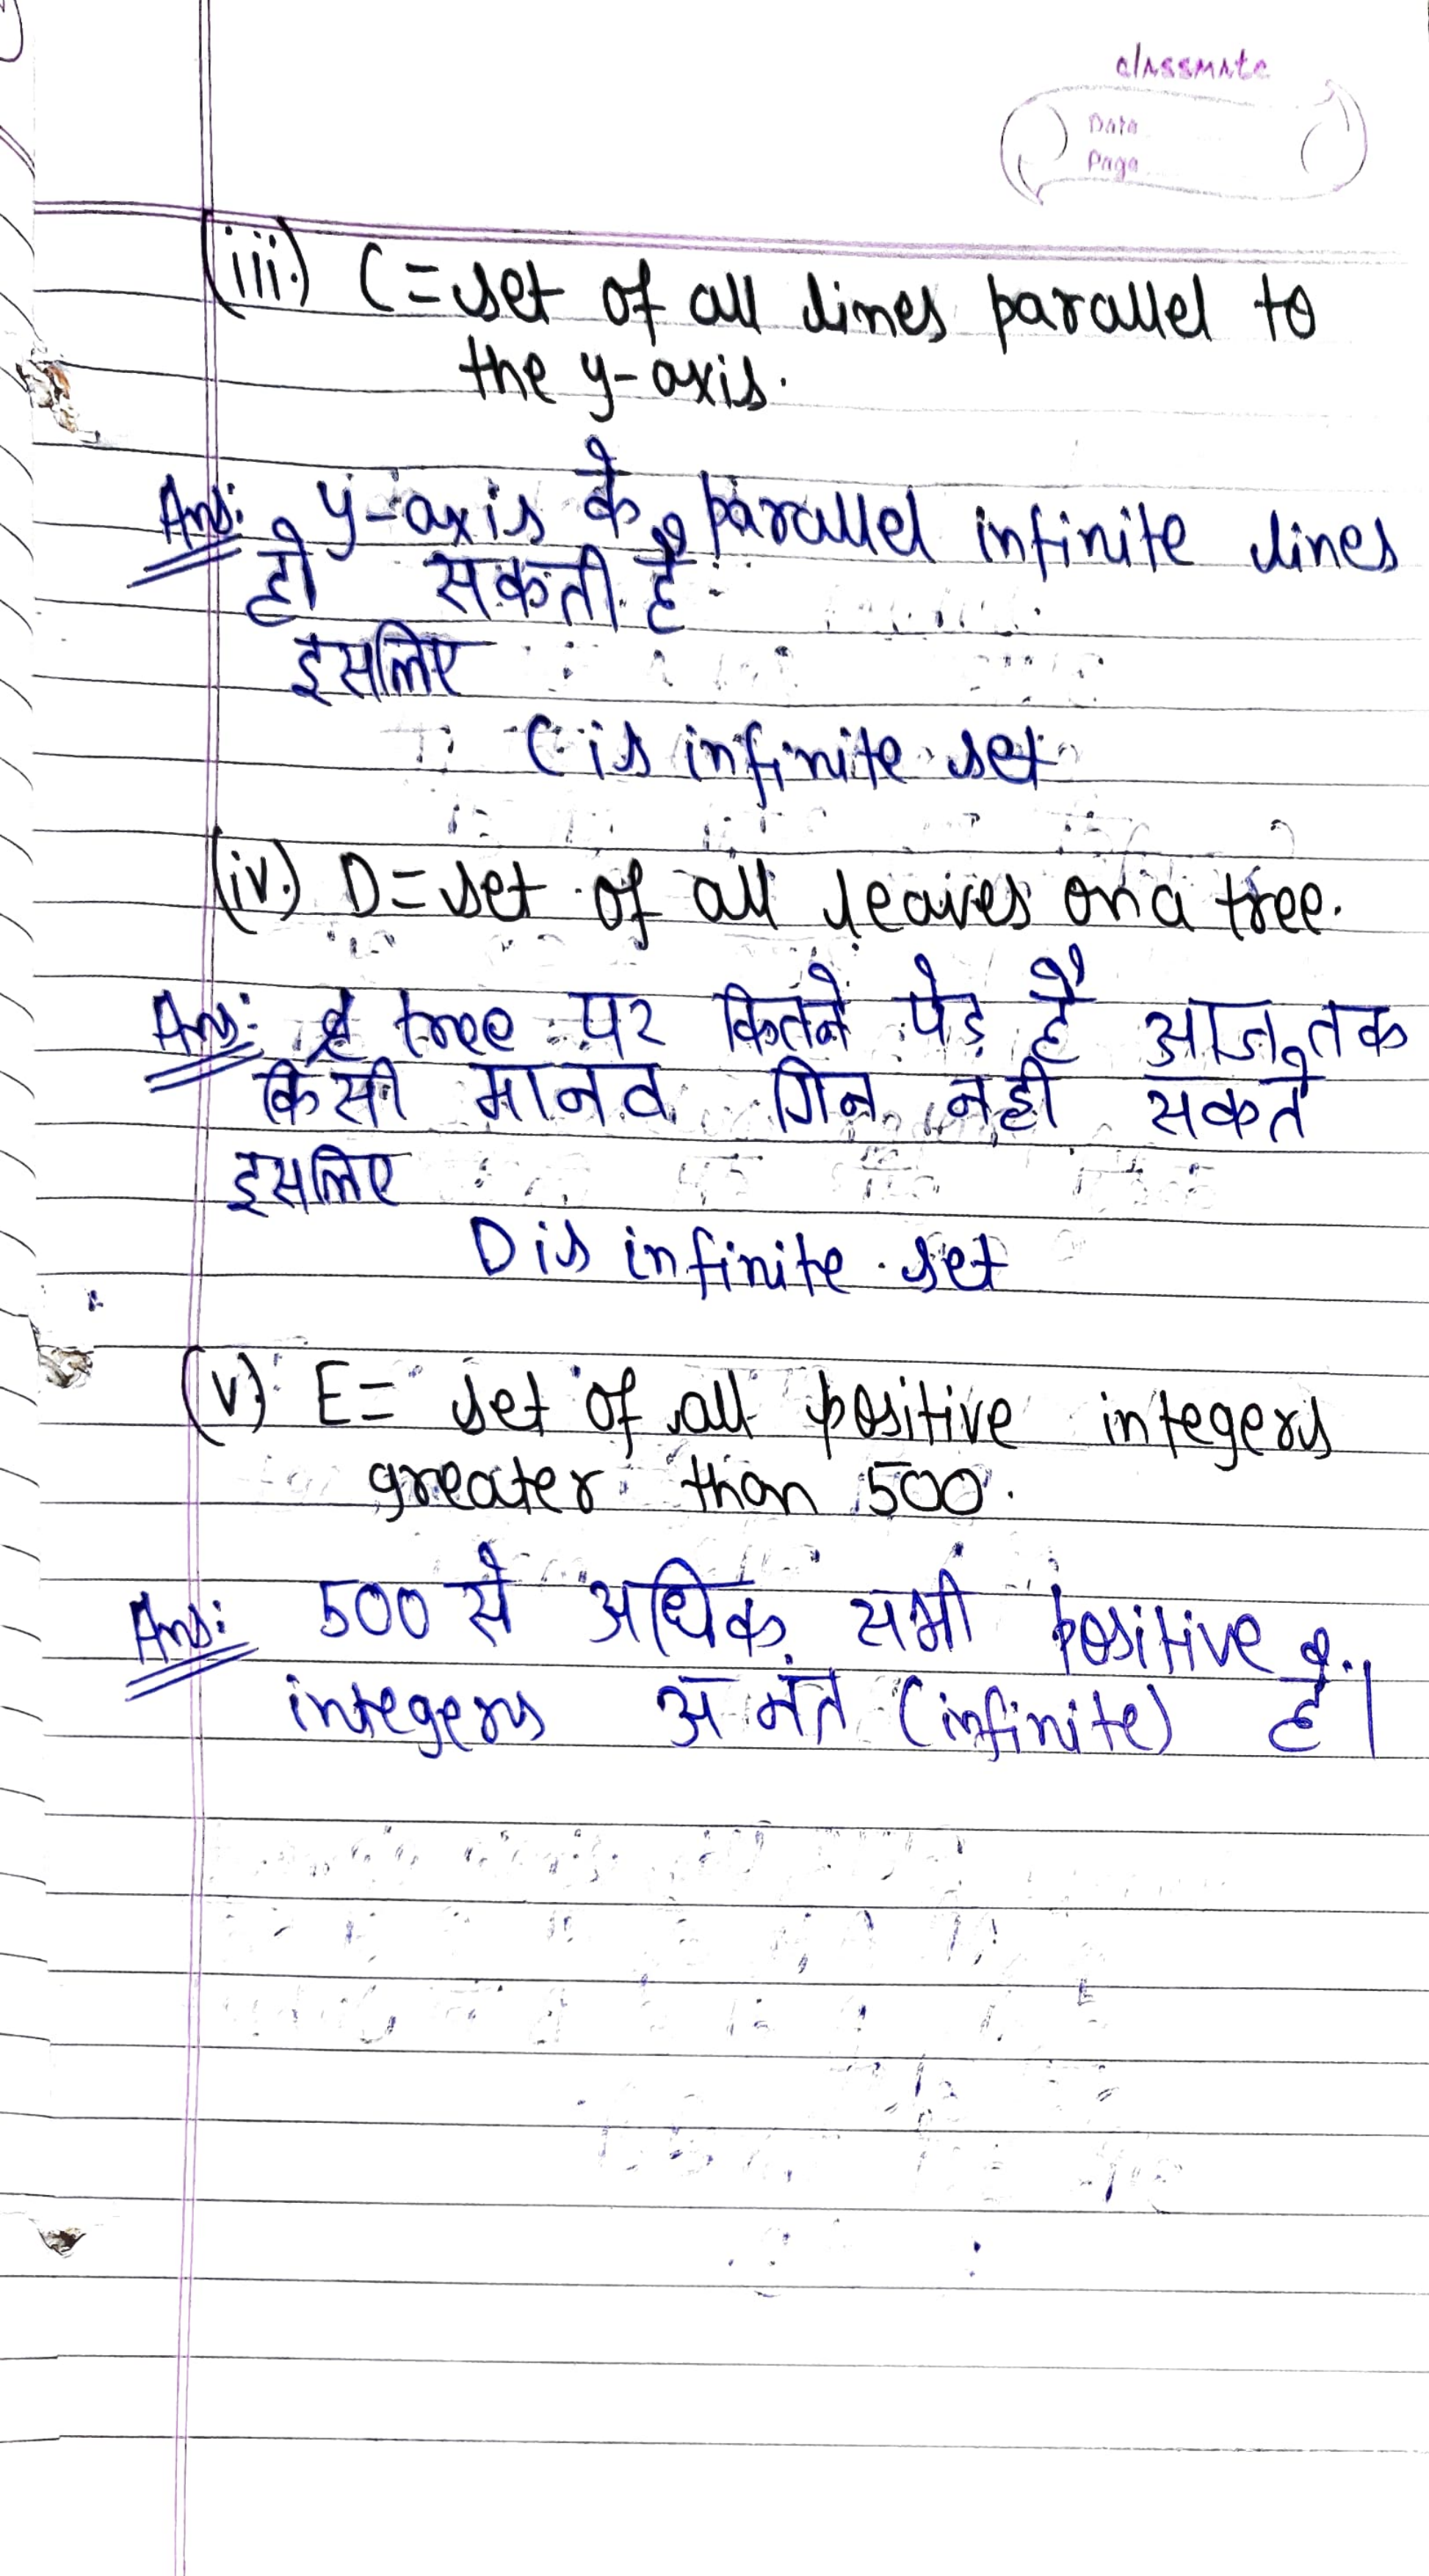 classmate
Date
Page
(iii.) C = set of all lines parallel to
the y-axis.
Ans: y-axis के parallel infinite lines
हो सकती है
इसलिए
C is infinite set
(iv.) D = set of all leaves on a tree.
Ans: tree पर कितने पेड़ है आज तक
किसी मानव गिन नही सकते
इसलिए
D is infinite set
(v.) E = set of all positive integers
greater than 500.
Ans: 500 से अधिक सभी positive
integers अनंत (infinite) है।